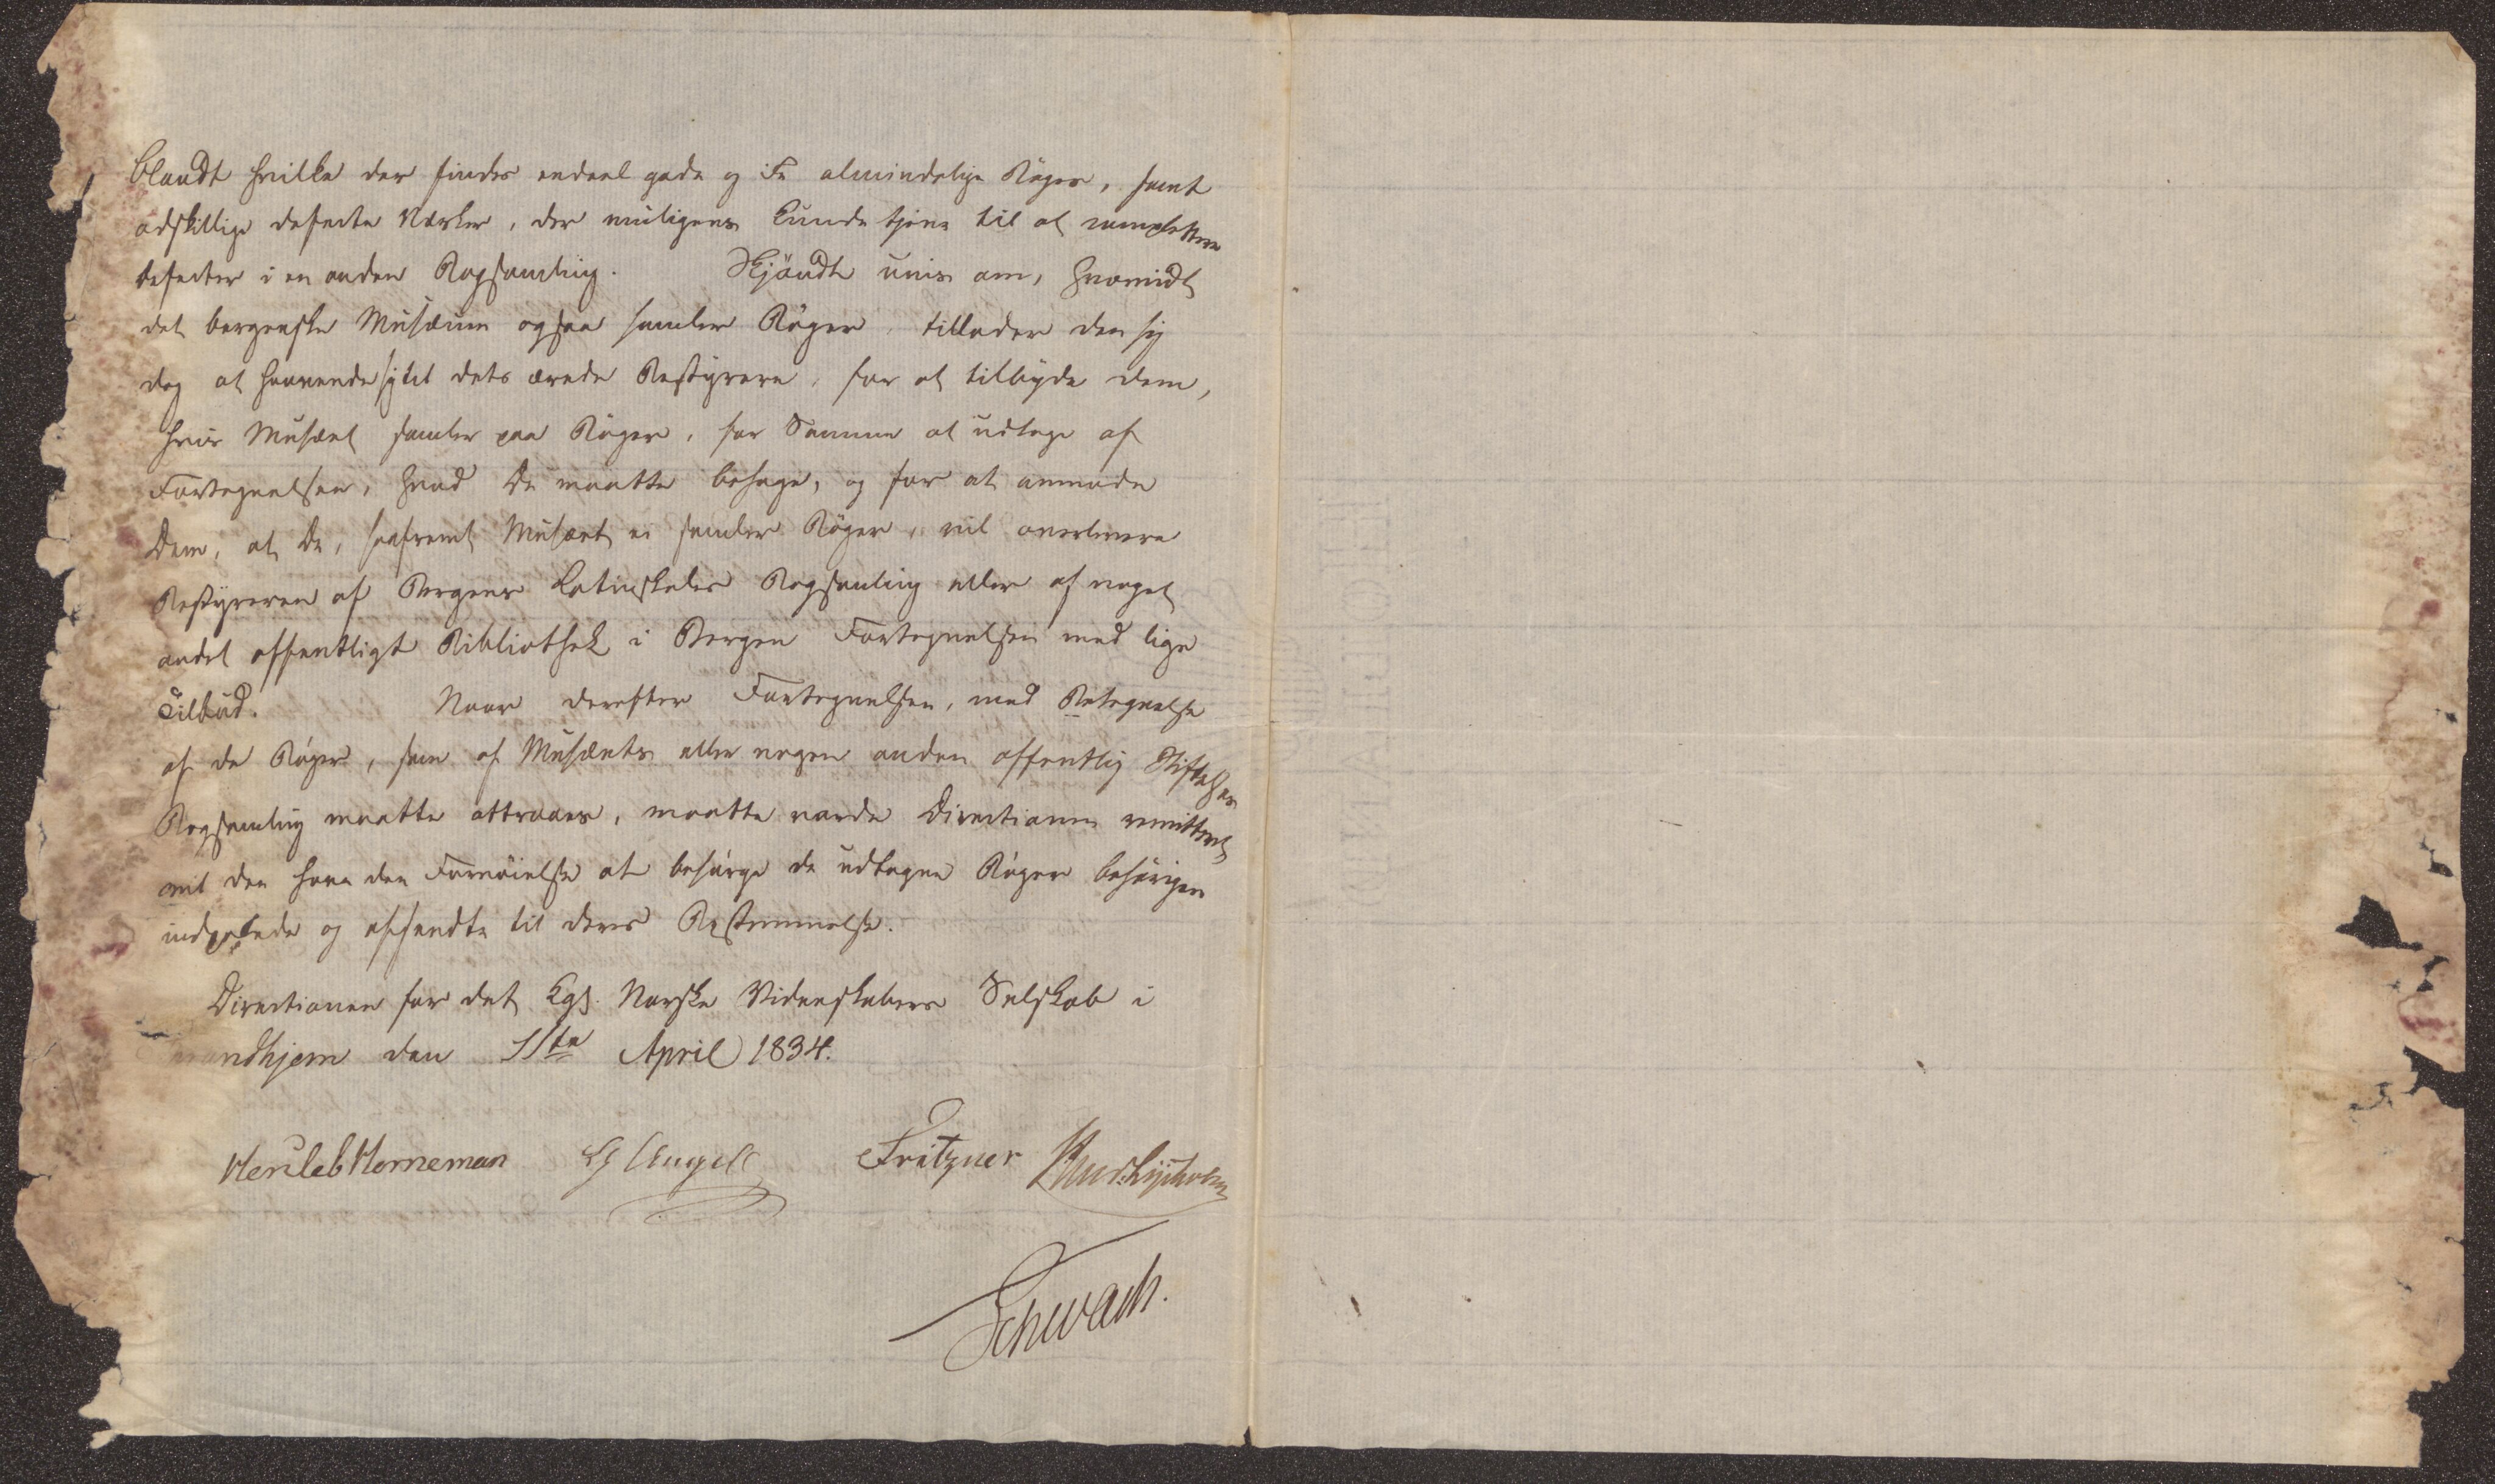 blandt hvilke der findes endeel gode og ei almindelige Bøger, samt
adskillige defecte Værker, der muligens kunde tjene til at complettere
defecter i en anden Bogsamling. Skjöndt uvis om, hvorvidt
det bergenske Musæum ogsaa samler Bøger, tillader den sig
dog at henvende sig til dets ærede Bestyrere, for at tilbyde dem,
hvis Musæet samler paa Bøger, for Samme at udtage af
Fortegnelsen, hvad De maatte behage, og for at anmode
Dem, at De, saafremt Musæet ei samler Bøger, vil overlevere
Bestyreren af Bergens Latinskoles Bogsamling eller af noget
andet offentligt Bibliothek i Bergen Fortegnelsen med lige
Tilbud. Naar derefter Fortegnelsen, med Betegnelse
af de Bøger, som af Musæets eller nogen anden offentlig Stiftelses
Bogsamling maatte attraaes, maatte vorde Directionen remitteret
vil den have den Fornöielse at besörge de udtagne Bøger behörigen
indpakede og afsendte til deres Bestemmelse.
Directionen for det Kgl. Norske Videnskabers Selskab i
rondhjem den 11te April 1834.
Henleb Horneman Angell Fritzner Lysholm
Schwach.